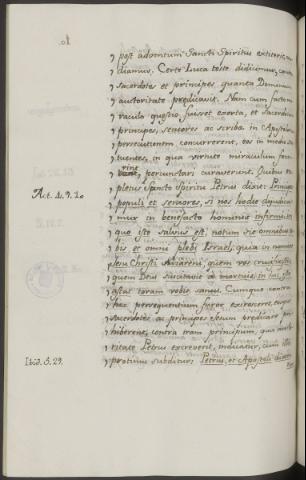 post adventum Sancti Spiritus extiterit, au-
diamus. Certe Luca teste didicimus, contra
sacerdotes et principes, quanta Domini
autoritate predicavit. Nam cum facto mi-
raculo quæstio fuisset exorta, et sacerdotum
principes, seniores ac scribæ in Apostolorum
persecutionem concurrerent, eos in medio sta-
tuentes, in qua virtute miraculum fecis-
sent, percunctari curaverunt. Quibus re-
pletus Spiritu Sancto Petrus dixit: Principes
Act. 4. 9. 10 populi et seniores, si nos hodie dijudica-
mur in benefacto hominis infirmi, in
quo iste salvus est, notum sit omnibus vo-
bis et omni plebi Israël, quia in nomine
Jesu Christi Nazareni, quem vos crucifixistis,
quem Deus suscitavit a mortuis, in hoc iste
astat coram vobis sanus. Cumque contra
hæc persequentium furor excresceret, atque
sacerdotes ac principes Jesum predicare pro-
hiberent, contra iram principum, qua aucto-
ritate Petrus excreverit, indicatur, cum illic
Ibid. 5. 29. protinus subditur: Petrus, et Apostoli dixerunt